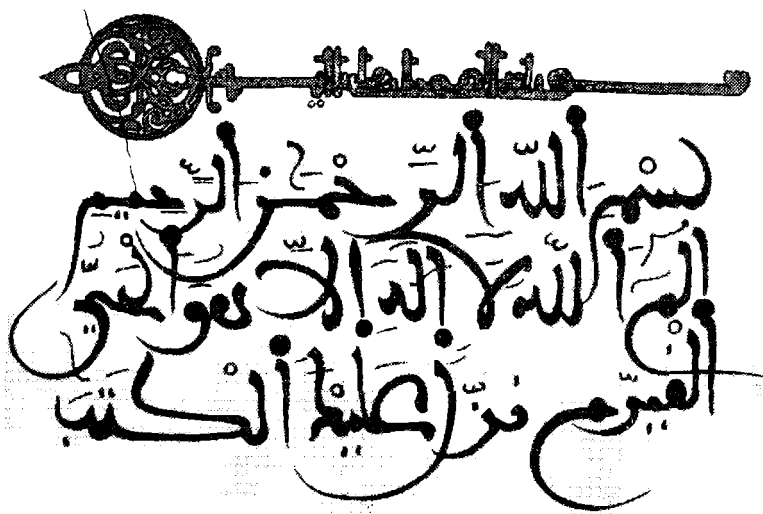 بسم الله الرحمن الرحيم
الم الله لا إله إلا هو الحي
القيوم نزل عليك الكتب